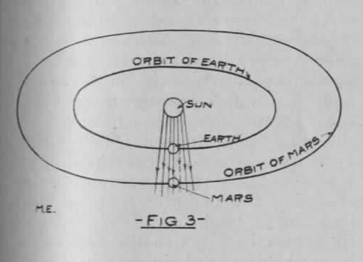 ORBIT OF EARTH
SUN
EARTH
ORBIT OF MARS
MARS
M.E.
-FIG 3-